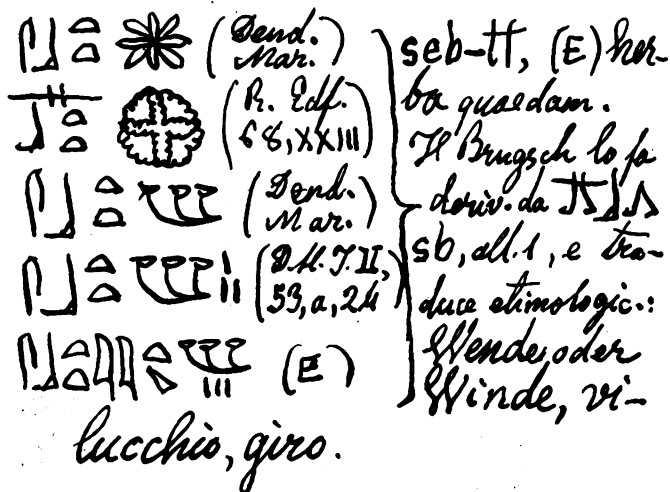 𓋴𓃀𓏏𓏏 (Dend. Mar.)
𓊃𓃀𓏏𓏏 (R. Edf. 68, XXIII)
𓋴𓃀𓏏𓏏𓆰 (Dend. Mar.)
𓋴𓃀𓏏𓏏𓆰𓏥 (D.H.T. II, 53, a, 24)
𓋴𓃀𓏏𓏏𓇋𓇋 (E)
seb-tt, (E) her-
ba quaedam.
Il Brugsch lo fa
deriv. da 𓊃𓃀𓂻
sb, all. 1, e tra-
duce etimologic.:
Wende, oder
Winde, vi-
lucchio, giro.